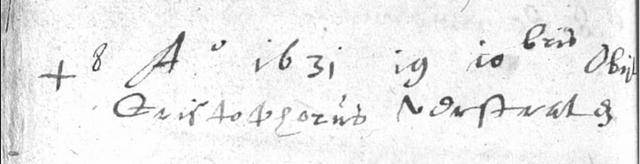 + 8 A° 1631 19 10bris Obijt
Cristophorus Verstraten